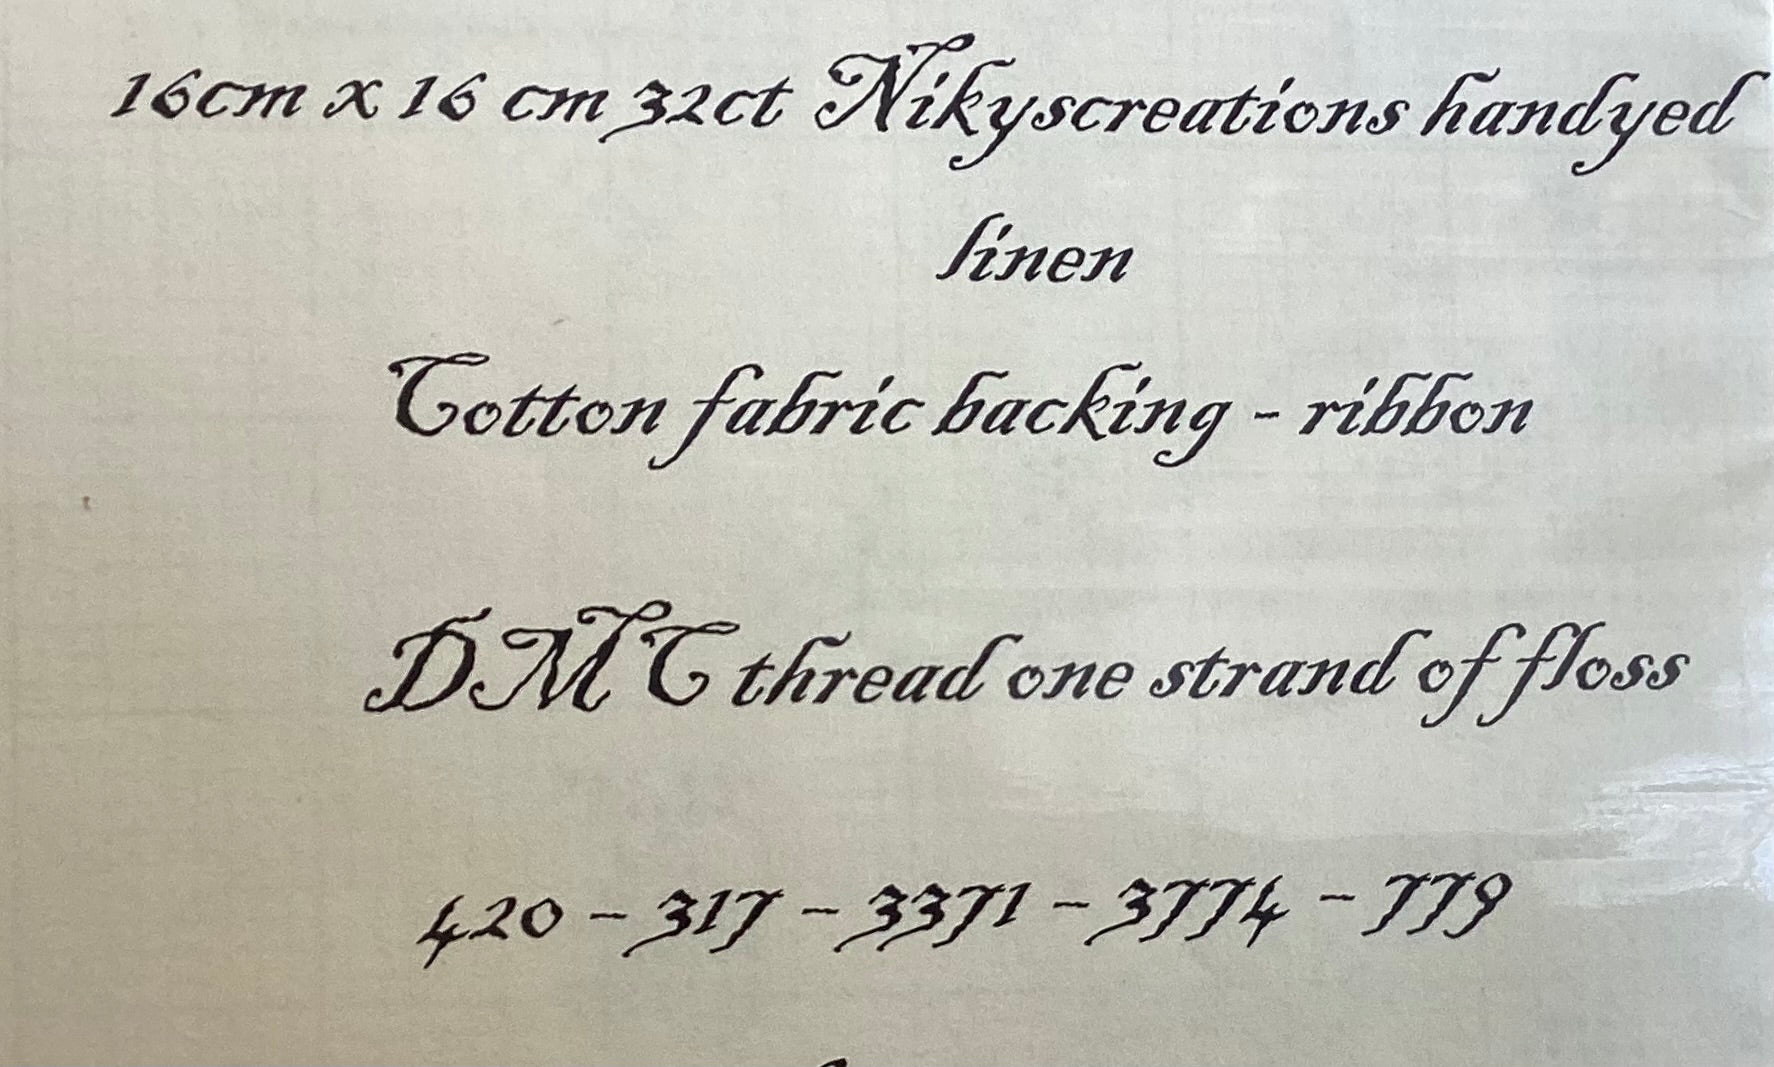 16cm x 16 cm 32ct Nikyscreations handyed
linen
Cotton fabric backing - ribbon
DMC thread one strand of floss
420 - 317 - 3371 - 3774 - 779